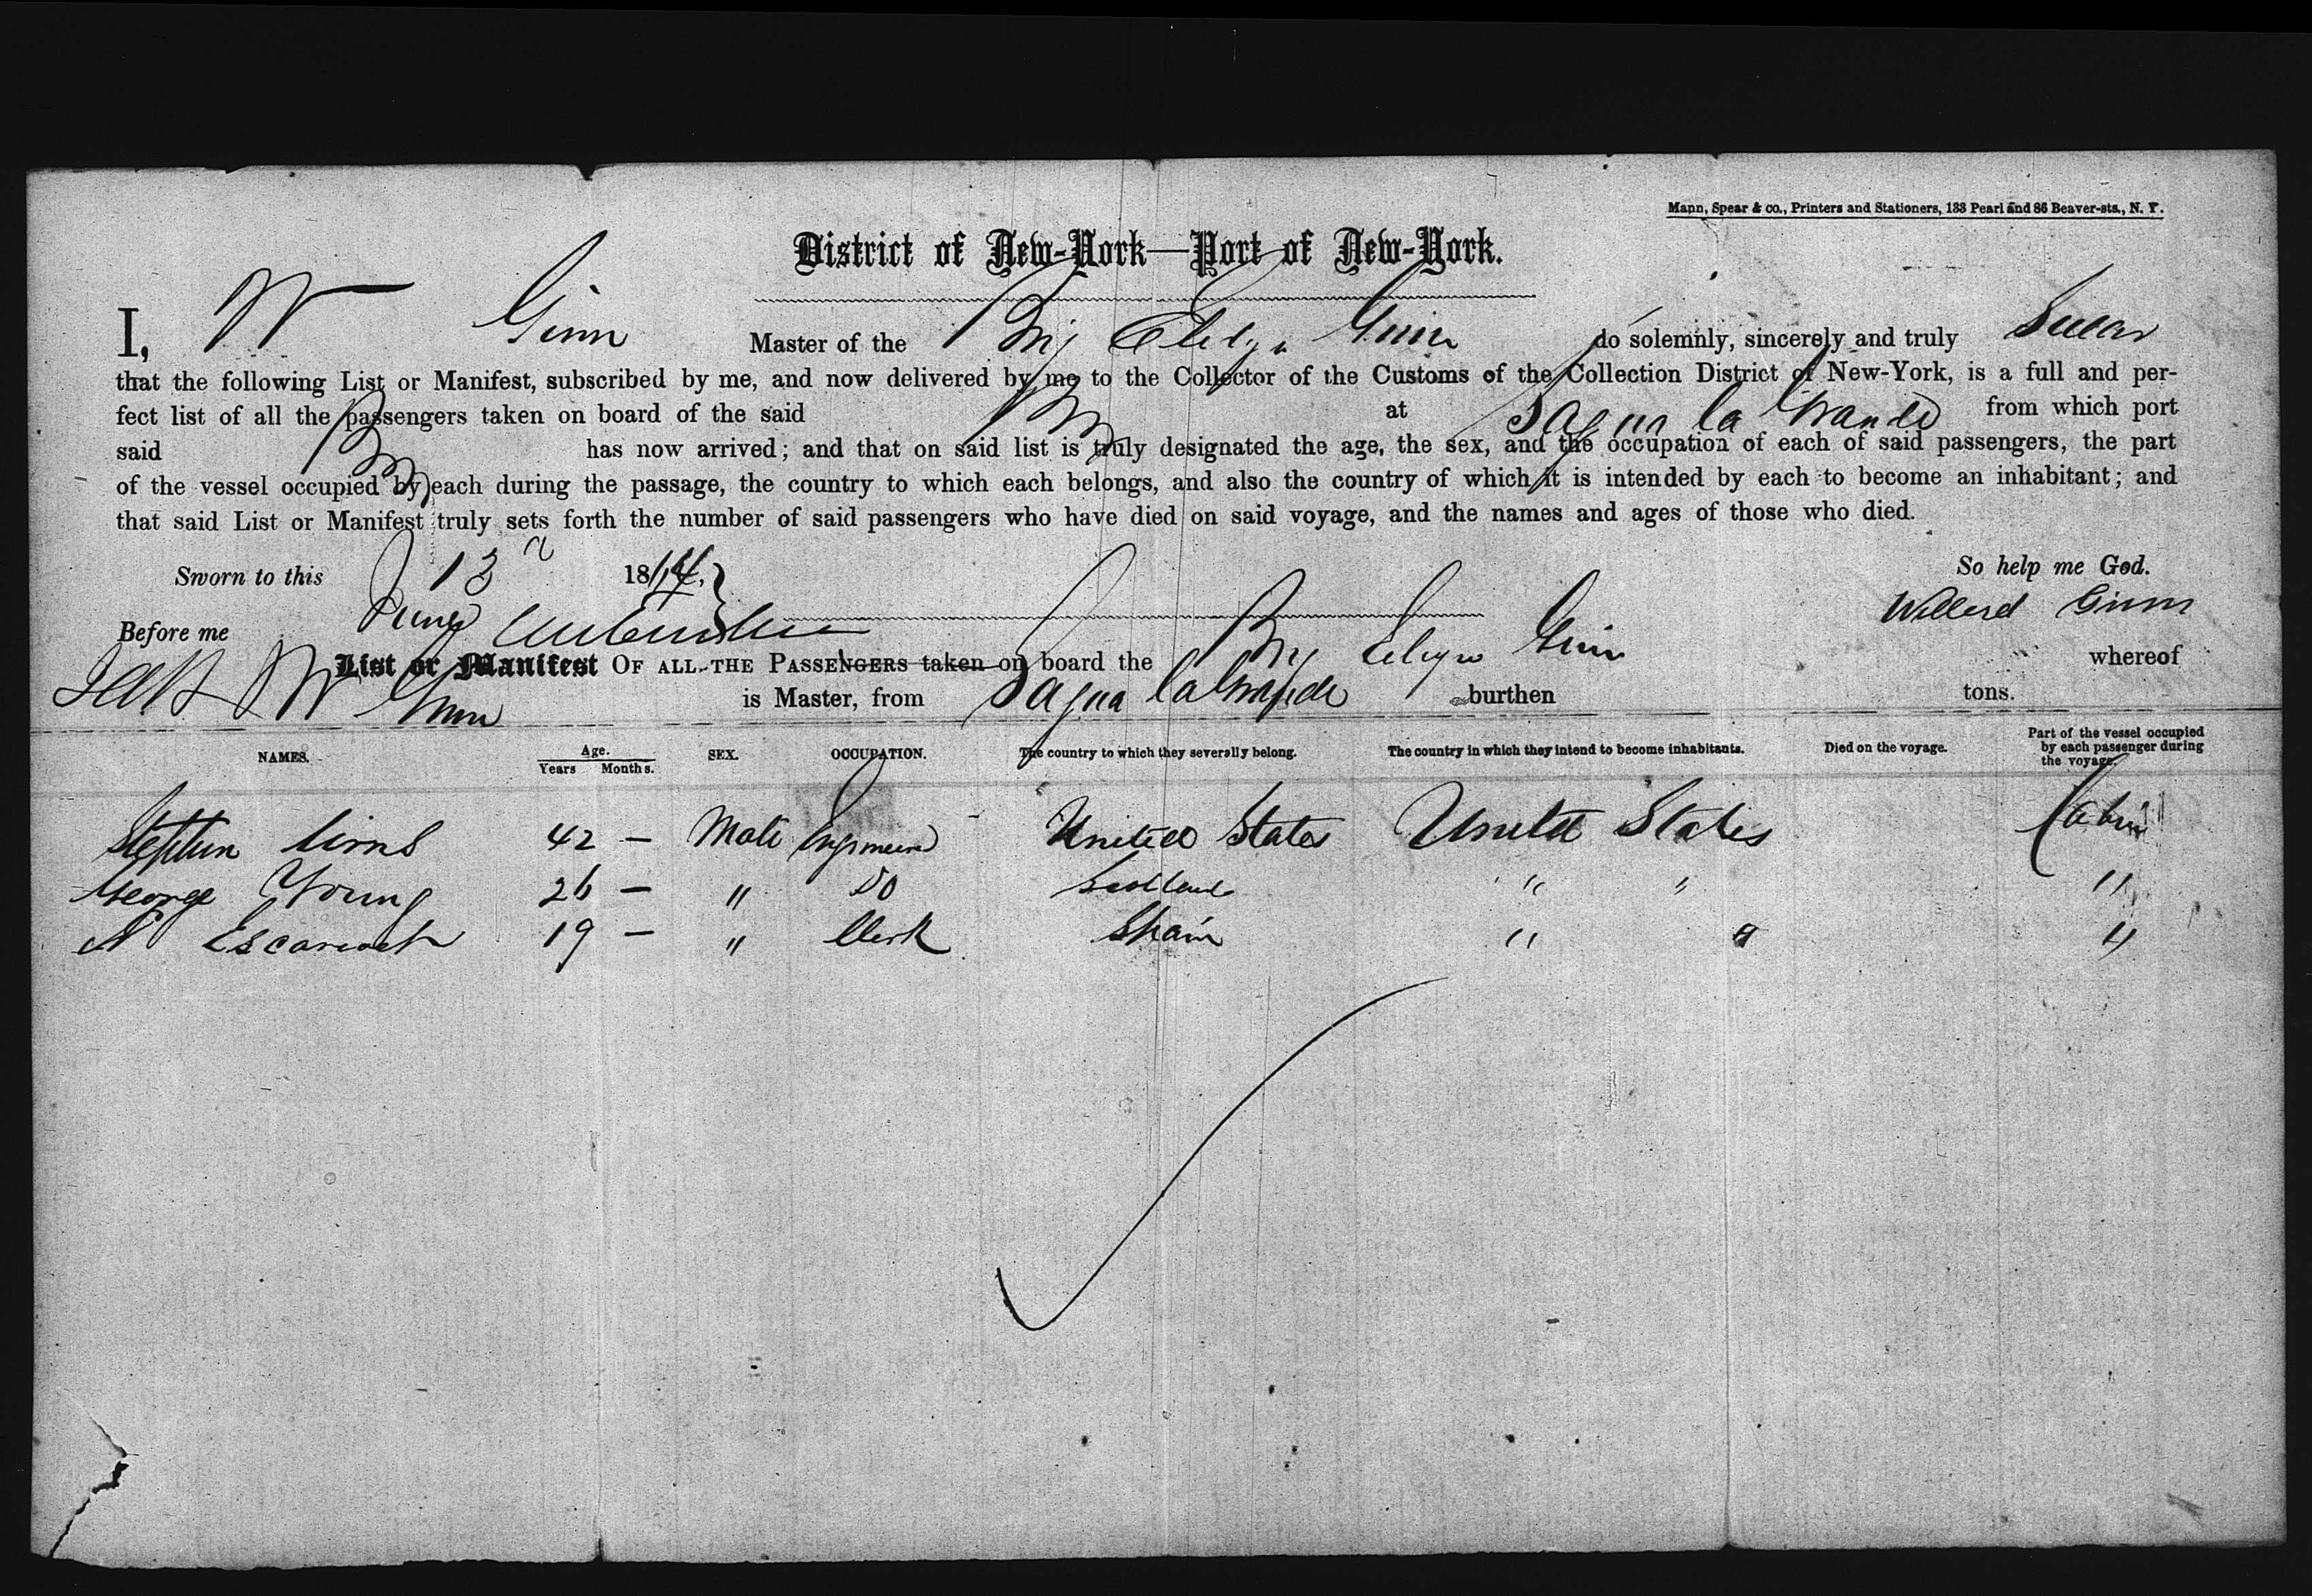 Mann, Spear & co., Printers and Stationers, 133 Pearl and 86 Beaver-sts., N. Y.
District of New-York—Port of New-York.
I, W Ginn Master of the Brig Ginn do solemnly, sincerely and truly Swear
that the following List or Manifest, subscribed by me, and now delivered by me to the Collector of the Customs of the Collection District of New-York, is a full and per-
fect list of all the passengers taken on board of the said Brig at Sagua la Grande from which port
said Brig has now arrived; and that on said list is truly designated the age, the sex, and the occupation of each of said passengers, the part
of the vessel occupied by each during the passage, the country to which each belongs, and also the country of which it is intended by each to become an inhabitant; and
that said List or Manifest truly sets forth the number of said passengers who have died on said voyage, and the names and ages of those who died.
Sworn to this June 13 1864. So help me God.
Before me Willard Ginn
List or Manifest OF ALL THE PASSENGERS taken on board the Brig Ginn whereof
W Ginn is Master, from Sagua la Grande burthen tons.
NAMES. Age. Years Months. SEX. OCCUPATION. The country to which they severally belong. The country in which they intend to become inhabitants. Died on the voyage. Part of the vessel occupied by each passenger during the voyage.
Stephen 42 — Male Engineer United States United States Cabin
George Young 26 — " Do Scotland " " "
19 — " Clerk Spain " " "